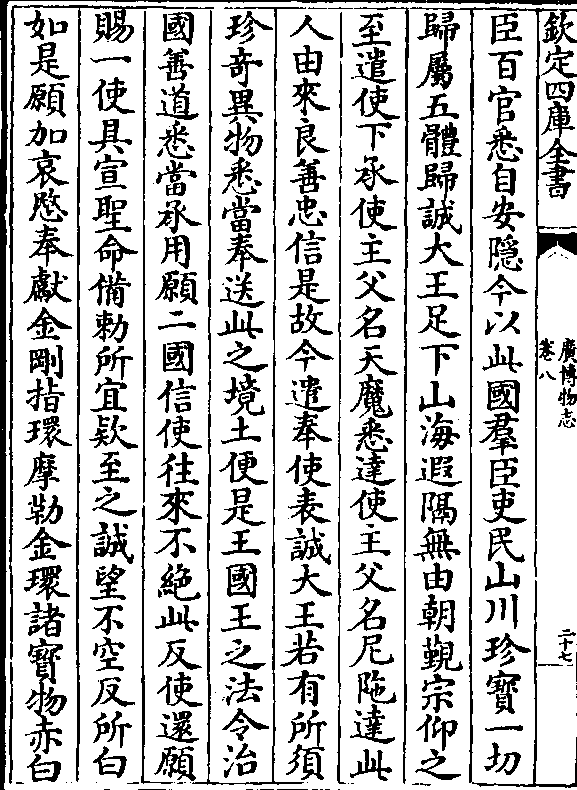 欽定四庫全書
廣博物志
卷八
二十七
臣百官悉自安隱今以此國羣臣吏民山川珍寳一切
歸屬五體歸誠大王足下山海遐隔無由朝覲宗仰之
至遣使下承使主父名天魔悉達使主父名尼陁達此
人由來良善忠信是故今遣奉使表誠大王若有所須
珍竒異物悉當奉送此之境土便是王國王之法令治
國善道悉當承用願二國信使往來不絶此反使還願
賜一使具宣聖命備勅所宜欵至之誠望不空反所白
如是願加哀愍奉獻金剛指環摩勒金環諸寳物赤白